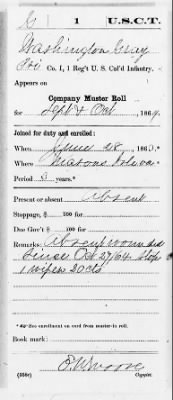 G | 1 | U.S.C.T.
Washington Gray
Pvt, Co. I, 1 Reg't U. S. Col'd Infantry.
Appears on
Company Muster Roll
for Sept & Oct, 1864.
Joined for duty and enrolled:
When June 28, 1863.
Where Masons Island
Period 3 years.*
Present or absent Absent
Stoppage, $ 100 for
Due Gov't $ 100 for
Remarks: Absent
since Oct 27/64 Stop
1 wiper 20 cts
* See enrollment on card from muster-in roll.
Book mark:
(358c) Copyist.